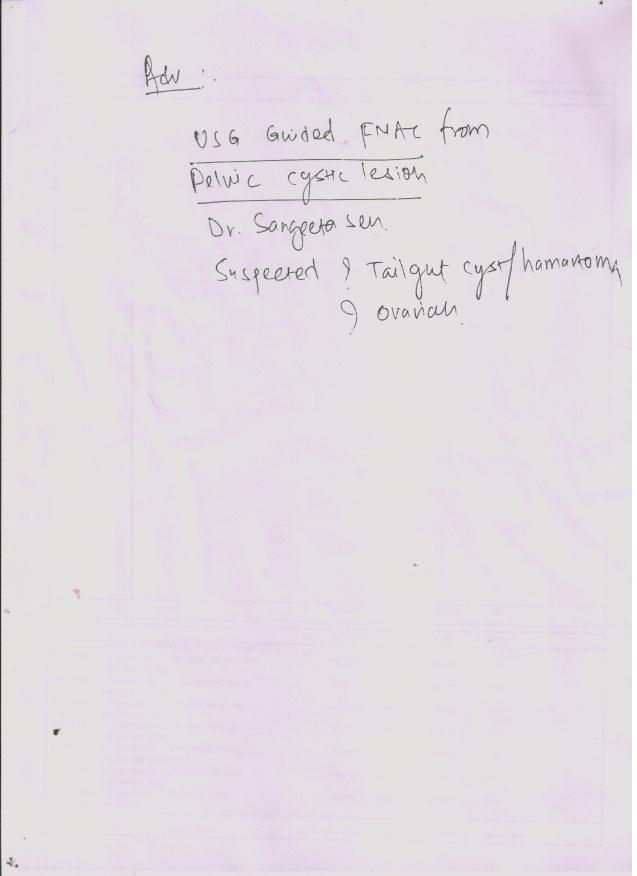 Adv :
USG Guided FNAC from
Pelvic cystic lesion
Dr. Sangeeta Sen.
Suspected ? Tailgut cyst/hamartoma
? ovarian.